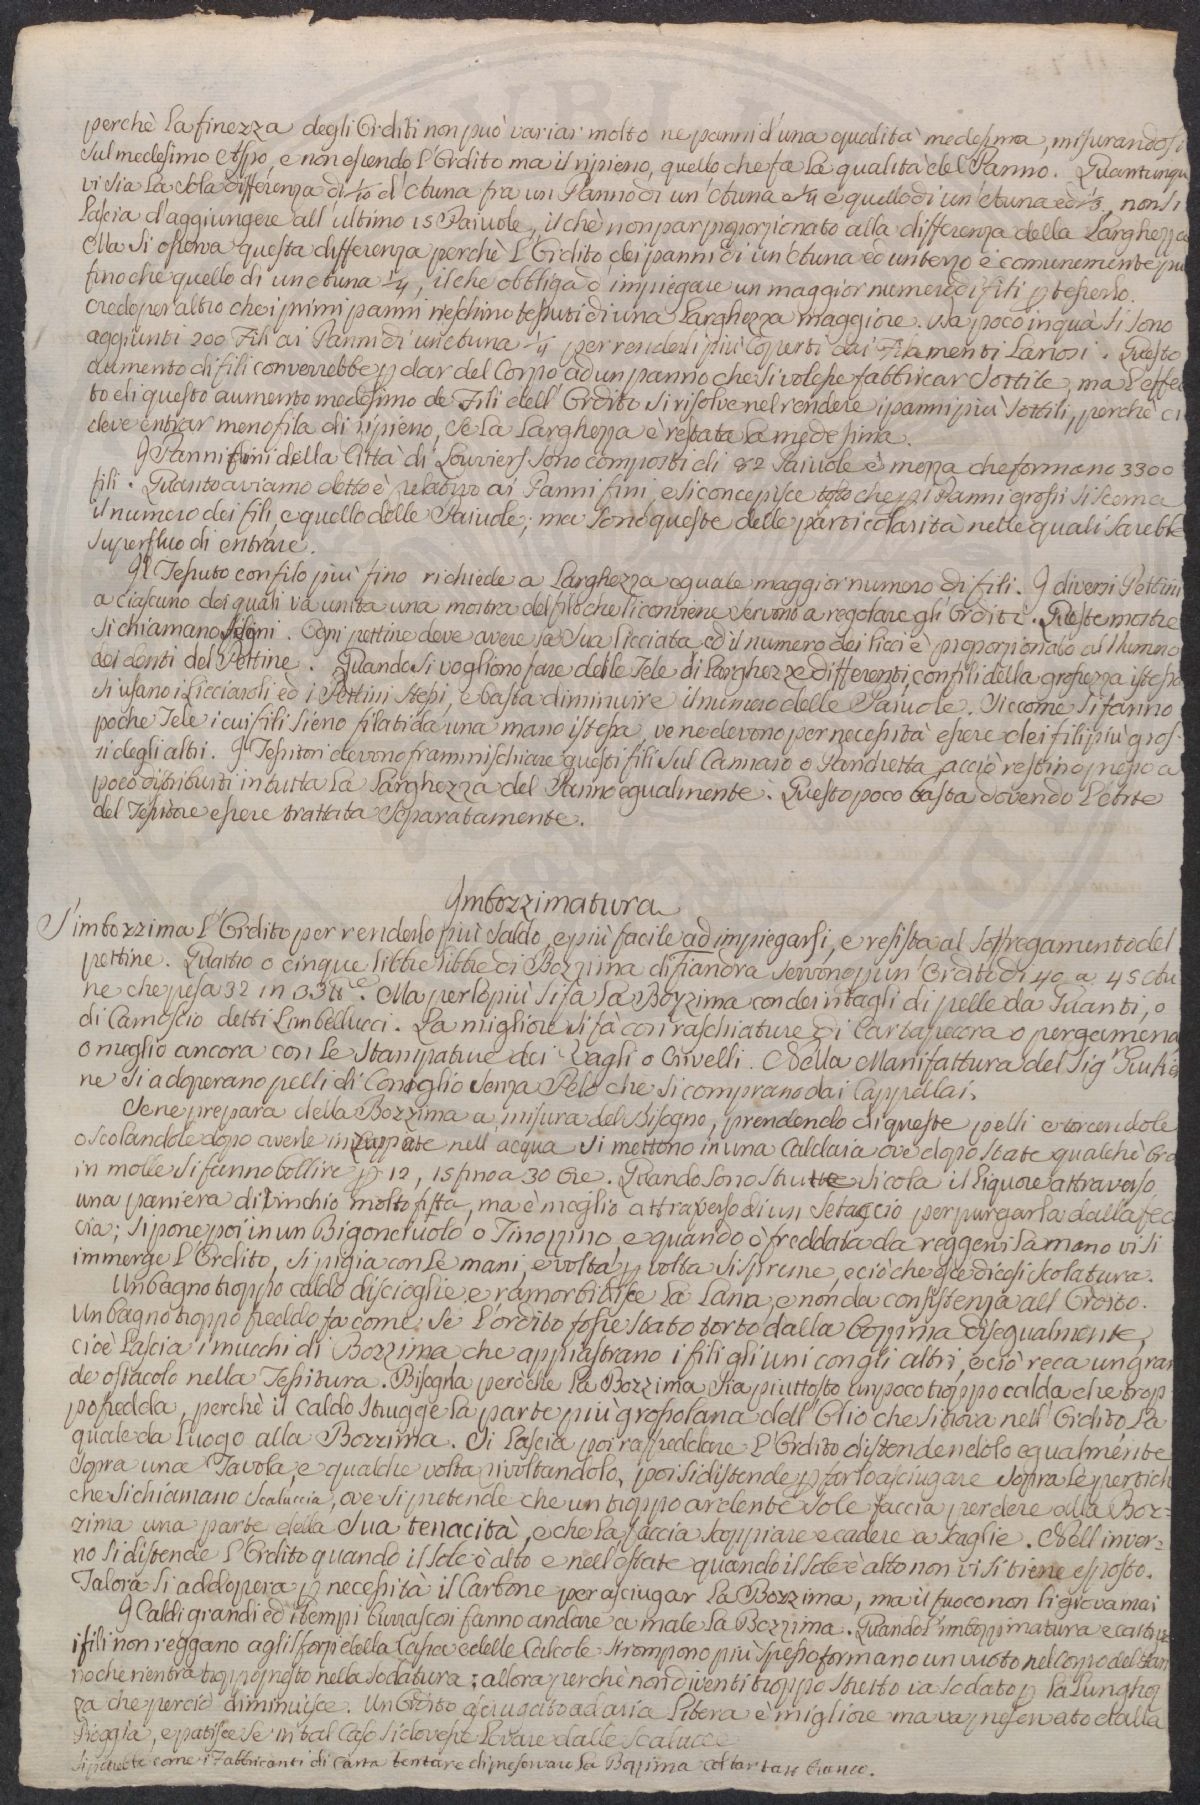 perchè la finezza degli Orditi non può variar molto ne panni d'una qualità medesima, misurandosi
sul medesimo Aspo, e non essendo l'Ordito ma il ripieno, quello che fa la qualità del Panno. Quantunque
vi sia la sola differenza di 1/10 d'Otuna fra un Panno di un'Otuna e 1/4 e quello di un'Otuna ed 1/3, non si
lascia d'aggiungere all'ultimo 15 Paiuole, il chè non par proporzionato alla differenza della Larghezza
Ma si osserva questa differenza perchè l'Ordito dei panni di un'Otuna ed un terzo è comunemente più
fino che quello di un otuna 1/4, il che obbliga d impiegare un maggior numero di fili p tesserlo.
Credo per altro che i primi panni rieschino tessuti di una Larghezza maggiore. Da poco in quà si sono
aggiunti 200 Fili ai Panni di un'Otuna 1/4 per renderli più coperti dai Filamenti Lanosi. Questo
aumento di fili converrebbe p dar del Corpo ad un panno che si volesse fabbricar Sottile, ma l'effet
to di questo aumento medesimo de Fili dell'Ordito si risolve nel rendere i panni più sottili, perchè ci
deve entrar meno fila di ripieno, se la Larghezza è restata la medesima.
I Panni fini della Città di Louviers sono composti di 82 Paiuole e mezza che formano 3300
fili. Quanto aviamo detto è relativo ai Panni fini, e si concepisce tosto che pi Panni grossi si scema
il numero dei fili, e quello delle Paiuole; ma sono queste delle particolarità nelle quali sarebbe
superfluo di entrare.
Il Tessuto con filo più fino richiede a Larghezza eguale maggior numero di fili. I diversi Pettini
a ciascuno dei quali và unita una mostra del filo che li conviene servono a regolare gli Orditi. Queste mostre
si chiamano Segni. Ogni pettine deve avere la sua licciata ed il numero dei licci è proporzionato al Numero
dei denti del Pettine. Quando si vogliono fare delle Tele di Larghezze differenti con fili della grossezza istessa
si usano i Licciaroli ed i Pettini stessi, e basta diminuire il numero delle Paiuole. Siccome si fanno
poche Tele i cui fili sieno filati da una mano istessa, ve ne devono per necessità essere dei fili più gros-
si degli altri. I Tessitori devono frammischiare questi fili sul Cannaio o Panchetta acciò restino presso a
poco distribuiti in tutta la Larghezza del Panno egualmente. Questo poco basta dovendo l'Arte
del Tessitore essere trattata separatamente.
Imbozzimatura
S'imbozzima l'Ordito per renderlo più saldo, e più facile ad impiegarsi, e resista al soffregamento del
pettine. Quattro o cinque libbre libbre di Bozzima di Fiandra servono p un'Ordito di 40 a 45 otu
ne che pesa 32 in 33 tte. Ma per lo più si fà la Bozzima con dei ritagli di pelle da Guanti, o
di Camoscio detti Limbellucci. La migliore si fà con raschiature di Cartapecora o pergamena
o meglio ancora con le Stampature dei Vagli o Crivelli. Nella Manifattura del Sigr Giulie
ne si adoperano pelli di Coniglio senza Pelo che si comprano dai Cappellai.
Se ne prepara della Bozzima a misura del Bisogno, prendendo di queste pelli e torcendole
o scolandole dopo averle inzuppate nell'acqua si mettono in una Caldaia ove dopo state qualchè Ora
in molle si fanno bollire p 12, 15 fino a 30 Ore. Quando sono strutte si cola il liquore attraverso
una paniera di Vinchio molto fitta, ma è meglio attraverso di un Setaccio per purgarla dalla fec
cia; si pone poi in un Bigonciuolo o Tinozzino, e quando è freddata da reggervi la mano vi si
immerge l'Ordito, si pigia con le mani, e volta p volta si spreme, e ciò che esce dicesi scolatura.
Un bagno troppo caldo discioglie e rammorbidisce la Lana, e non da consistenza all'Ordito.
Un bagno troppo freddo fa come se l'ordito fosse stato torto dalla bozzima disegualmente,
cioè lascia i mucchi di Bozzima che appiastrano i fili gli uni con gli altri, e ciò reca un gran
de ostacolo nella Tessitura. Bisogna però che la Bozzima sia piuttosto un poco troppo calda che trop
po fredda, perchè il caldo strugge la parte più grossolana dell'Olio che si trova nell'Ordito la
quale da luogo alla Bozzima. Si lascia poi raffreddare l'Ordito distendendolo egualmente
sopra una Tavola, e qualche volta rivoltandolo, poi si distende p farlo asciugare sopra le pertich
che si chiamano Scaluccia, ove si pretende che un troppo ardente Sole faccia perdere alla Boz-
zima una parte della sua tenacità, e che la faccia scoppiare e cadere a scaglie. Nell'inver-
no si distende l'Ordito quando il sole è alto e nell'estate quando il sole è alto non vi si tiene esposto.
Talora si addopera p necessità il Carbone per asciugar la Bozzima, ma il fuoco non li giova mai
I Caldi grandi ed i tempi burrascosi fanno andare a male la Bozzima. Quando l'imbozzimatura e cattiva
i fili non reggano agli sforzi della Cassa e delle Calcole si rompono più spesso formano un vuoto nel corpo del Pan
no che rientra troppo presto nella sodatura; allora perchè non diventi troppo stretto va sodato p la Lunghez
za che perciò diminuisce. Un Ordito asciugato ad aria libera è migliore ma va preservato dalla
Pioggia, e patisce se in tal caso si dovesse levare dalle scaluccie
Si potrebbe come i Fabbricanti di Carta tentare di preservare la Bozzima col tartaro bianco.